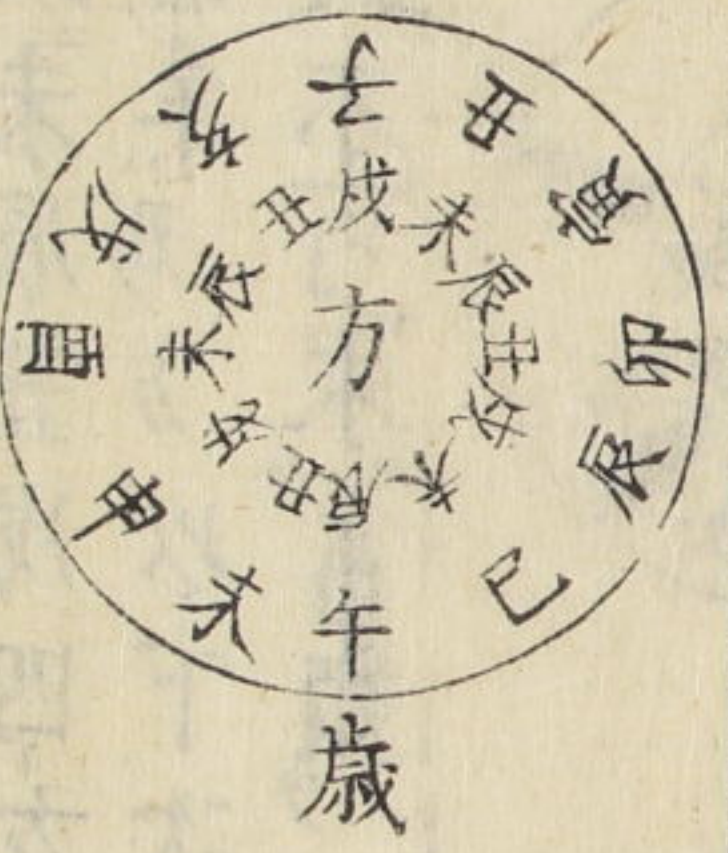 子丑寅卯辰巳午未申酉戌亥
戌未辰丑戌未辰丑戌未辰丑
方
歳